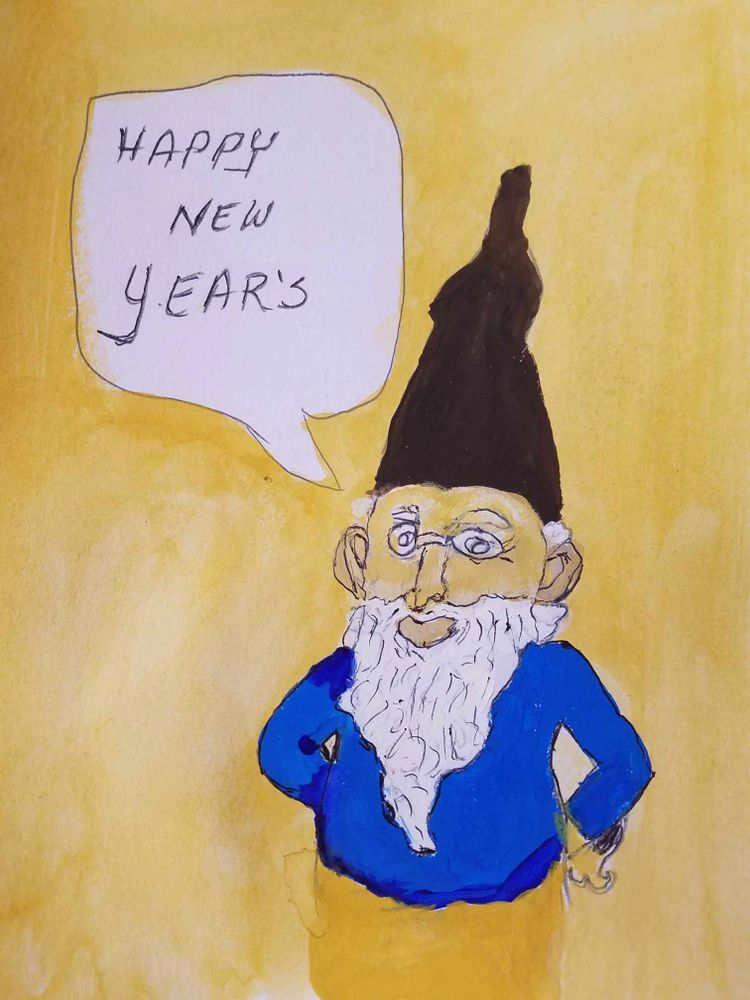 HAPPY
NEW
YEAR'S